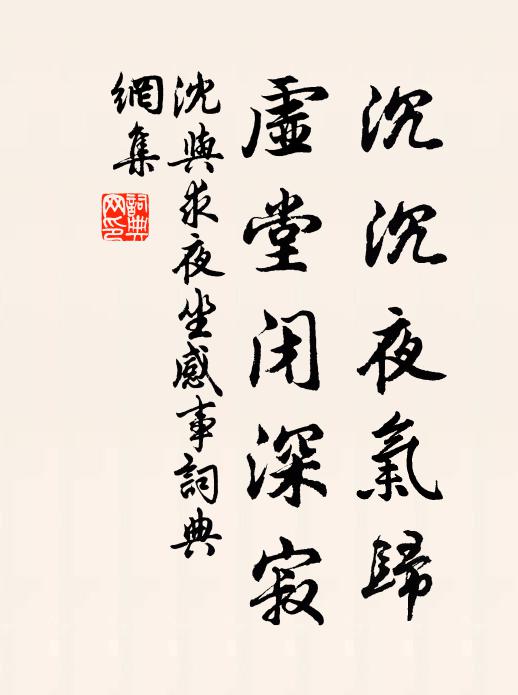 沉沉夜氣歸
虛堂閉深寂
沈與求夜坐感事詞典
網集
詞典
网印